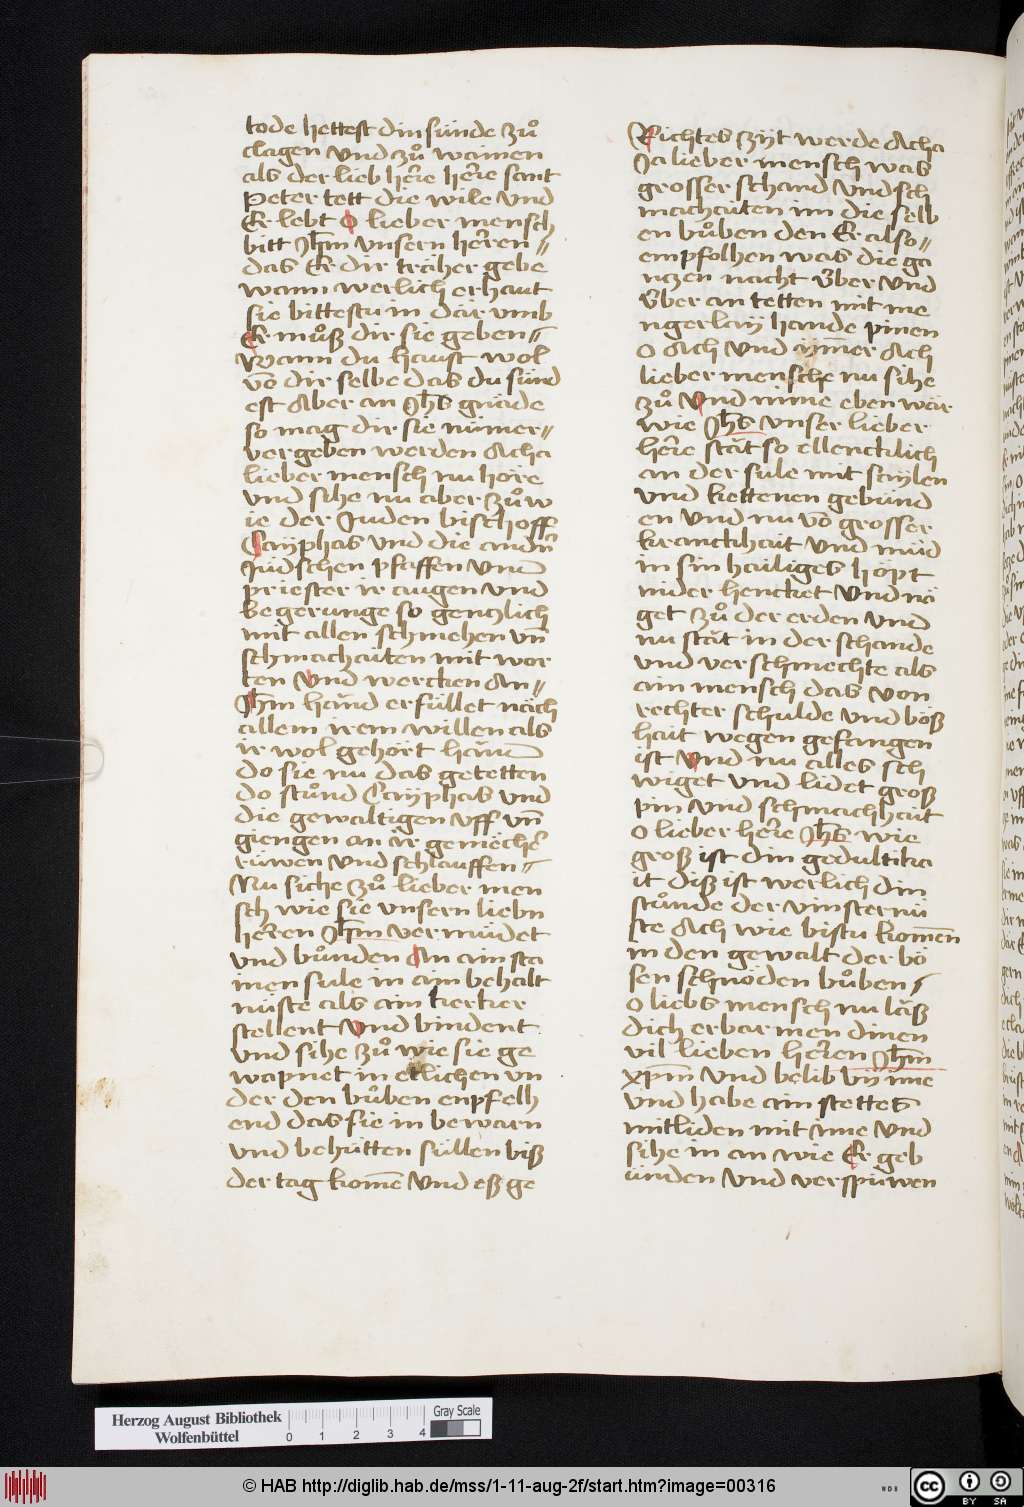 tode hettest din sünde zů
clagen vnd zů wainen
als der lieb herre herre sant
Peter tett die wile vnd
Er lebt O lieber mensch
bitt Jhm̄ vnsern herren
das Er dir träher gebe
wann werlich erhaut
sie bittestu in dar vmb
Er můß dir sie geben
Wann du haust wol
vō dir selbe das du sünd
est Aber an Jhs̄ gnāde
so mag dir sie nūmer
vergeben werden Acha
lieber mensch nu höre
vnd sihe nu aber zů w
ie der Juden bischoff
Cayphas vnd die andn̄
Jüdschen pfaffen vnn̄
priester ir augen vnd
begerunge so gentzlich
mit allen schmehen vn̄
schmachaiten mit wor
ten Vnd wercken An
Jhm̄ hānd erfüllet nāch
allem irem willen als
ir wol gehört hānn̄
do sie nu das getetten
do stůnd Cayphas vnd
die gewaltigen vff vn̄
giengen an ir gemäche
rüwen vnd schlauffen
Nu siche zů lieber men
sch wie sie vnsern liebn
herren Jhm̄ vermüdet
vnd bůnden An ain sta
inen sule in ain behalt
nüste als ain kerker
stellent Vnd bindent
vnd sihe zů wie sie ge
wapnet in etlichen vn
der den bůben enpfelh
end das sie in bewarn
vnd behütten süllen biß
der tag komē Vnd eß ge
Richtes zyt werde Acha
Ja lieber mensch was
grosser schand vnd sch
machaiten im die selb
en bůben den Er also
empfolhen was die ga
nczen nacht v̈ber vnd
v̈ber an tetten mit me
ngerlay hande pinen
O Ach vnd ym̄er Ach
lieber mensche nu sihe
zů Vnd nime eben war
wie Jhs̄ vnser lieber
herre stāt so ellencklich
an der sule mit saylen
vnd kettenen gebünd
en vnd nu vō grosser
kranckhait vnd müd
in sin hailiges höpt
nider hencket vnd nä
get zů der erden vnd
nu stāt in der schande
vnd verschmechte als
ain mensch das von
rechter schulde vnd böß
hait wegen gefangen
ist Vnd nu alles sch
wiget vnd lidet groß
pin vnd schmachhait
O lieber herre Jhs̄ wie
groß ist din gedultika
it diß ist werlich din
stůnde der vinsternü
ste Ach wie bistu komen
in den gewalt der bö
sen schnöden bůben
O liebs mensch nu lāß
dich erbarmen dinen
vil lieben herren Jhm̄
xpm̄ vnd belib by ime
vnd habe ain stettes
mitliden mit ime vnd
sihe in an wie Er geb
ünden vnd verspüwen
Herzog August Bibliothek
Wolfenbüttel
0 1 2 3 4
Gray Scale
© HAB http://diglib.hab.de/mss/1-11-aug-2f/start.htm?image=00316
WDB
cc
BY SA